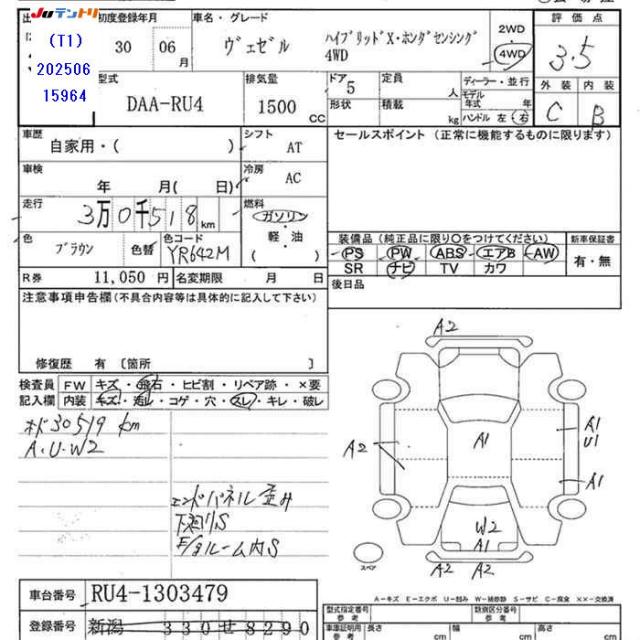 JUテントリ
(T1)
202506
15964
初度登録年月
30 06月
車名・グレード
ヴェゼル
ハイブリッドX・ホンダセンシング
4WD
2WD
4WD
評価点
3.5
型式
DAA-RU4
排気量
1500 CC
ドア 5
形状
定員 人
積載 kg
ディーラー・並行
モデル年式 年
ハンドル 左・右
外装 内装
C B
車歴
自家用・( )
シフト
AT
セールスポイント(正常に機能するものに限ります)
車検
年 月( 日)
冷房
AC
走行
3万0千518km
燃料
ガソリン
軽・油
色
ブラウン
色替
色コード
YR642M
( )
装備品(純正品に限り○をつけてください)
PS PW ABS エアB AW
SR ナビ TV カワ
新車保証書
有・無
R券 11,050円
名変期限 月 日
後日品
注意事項申告欄(不具合内容等は具体的に記入して下さい)
修復歴 有 〔箇所 〕
検査員 FW キズ・飛石・ヒビ割・リペア跡・×要
記入欄 内装 キズ・汚レ・コゲ・穴・スレ・キレ・破レ
オド30519km
A・U・W2
エンドパネル歪み
下廻りS
E/gルーム内S
A2
A2
A1
A1
U1
A1
W2
A1
A2 A2
スペア
A-キズ E-エクボ U-凹み W-補修跡 S-サビ C-腐食 XX-交換済
車台番号 RU4-1303479
登録番号 新潟 330せ8290
型式指定番号 参考
類別区分番号 参考
車庫証明用 参考
長さ cm
幅 cm
高さ cm